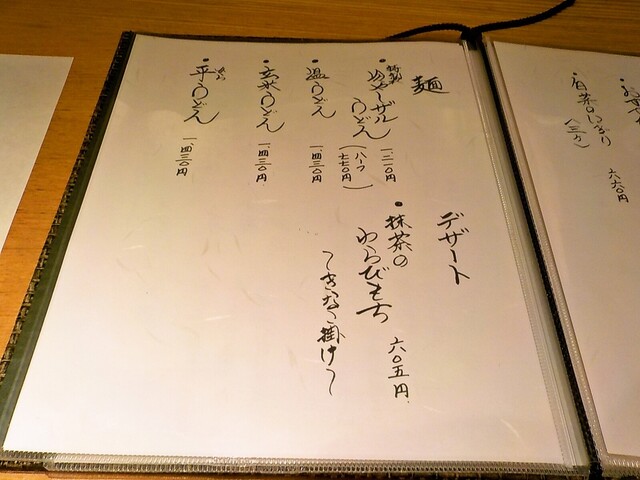 六六〇円
麺
・特製
ザル
うどん
一、二一〇円
(ハーフ
七七〇円)
・温うどん
一、四三〇円
・玄米うどん
一、四三〇円
・平うどん
一、四三〇円
デザート
・抹茶の
わらびもち
六〇五円
〜きなこ掛け〜